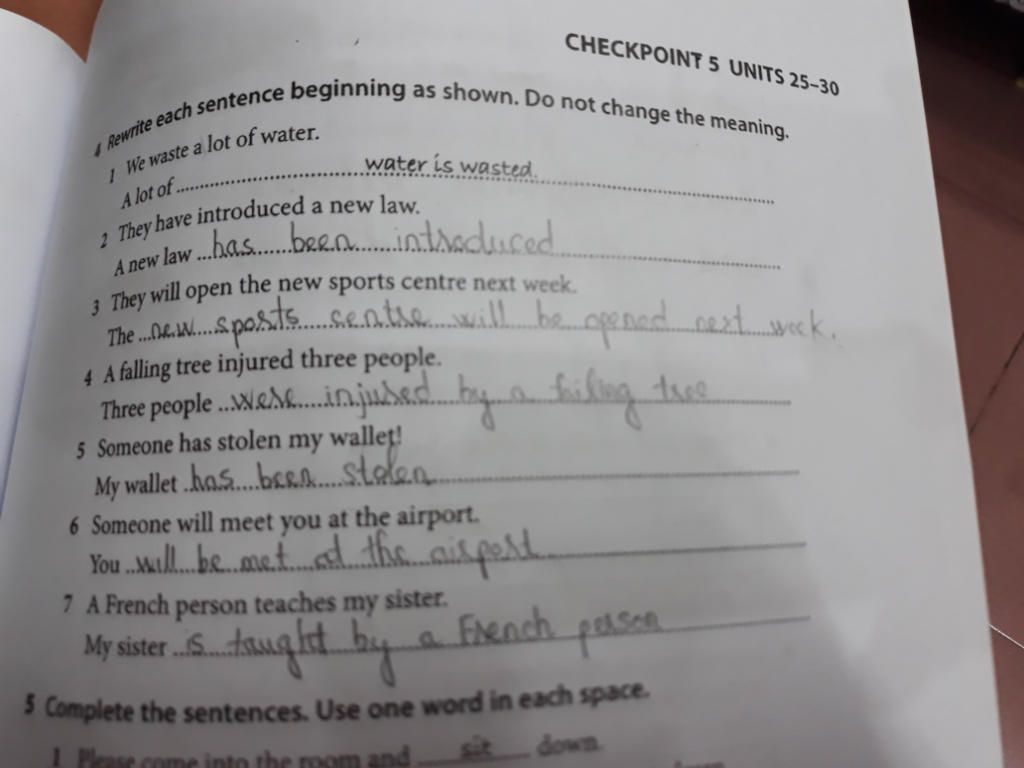 CHECKPOINT 5 UNITS 25–30
4 Rewrite each sentence beginning as shown. Do not change the meaning.
1 We waste a lot of water.
A lot of water is wasted.
2 They have introduced a new law.
A new law has been introduced
3 They will open the new sports centre next week.
The new sports sentre will be opened next week.
4 A falling tree injured three people.
Three people were injured by a tree
5 Someone has stolen my wallet!
My wallet has been stolen
6 Someone will meet you at the airport.
You will be met at the airport
7 A French person teaches my sister.
My sister is taught by a French person
5 Complete the sentences. Use one word in each space.
1 Please come into the room and sit down.